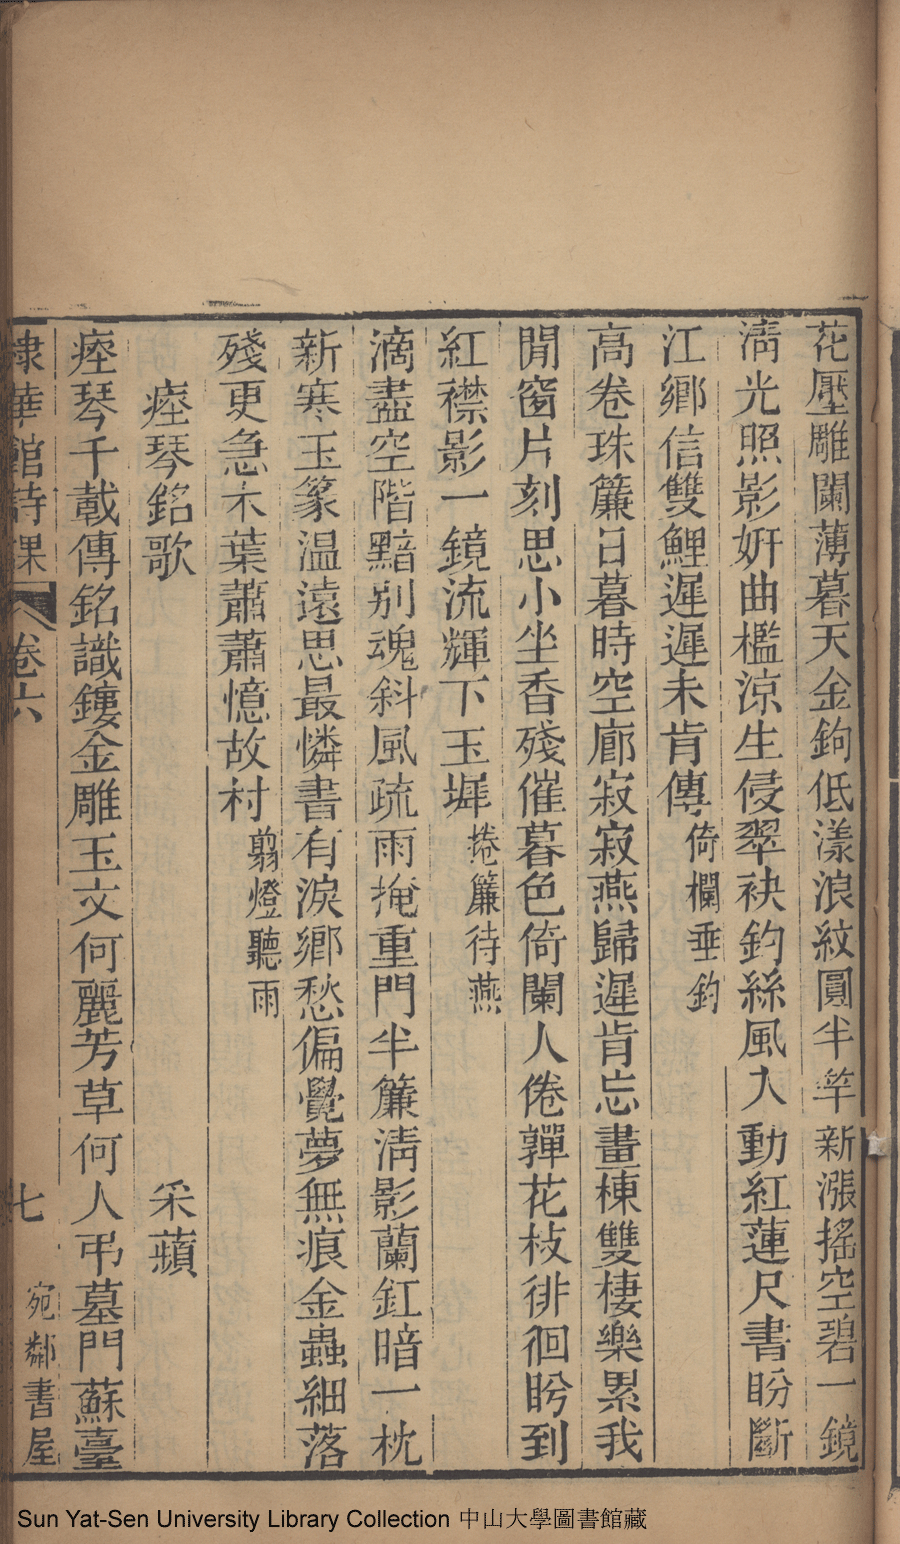 花壓雕闌薄暮天金鉤低漾浪紋圓半竿新漲搖空碧一鏡
清光照影妍曲檻涼生侵翠袂釣絲風入動紅蓮尺書盼斷
江鄉信雙鯉遲遲未肯傳倚欄垂釣
高卷珠簾日暮時空廊寂寂燕歸遲肯忘畫棟雙棲樂累我
閒窗片刻思小坐香殘催暮色倚闌人倦嚲花枝徘徊盻到
紅襟影一鏡流輝下玉墀捲簾待燕
滴盡空階黯别魂斜風疏雨掩重門半簾淸影蘭釭暗一枕
新寒玉篆温遠思最憐書有淚鄉愁偏覺夢無痕金蟲細落
殘更急木葉蕭蕭憶故村翦燈聽雨
瘞琴銘歌 采蘋
瘞琴千載傳銘識鏤金雕玉文何麗芳草何人弔墓門蘇臺
棣華館詩課 卷六 七 宛鄰書屋
Sun Yat-Sen University Library Collection 中山大學圖書館藏